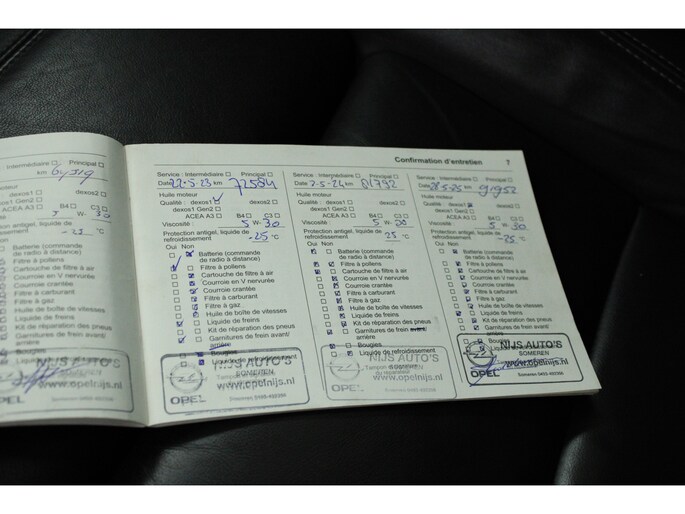 Confirmation d'entretien 7
Intermédiaire Principal
km 64519
moteur
dexos1 dexos2
dexos1 Gen2
ACEA A3 B4 C3
5 W- 30
Protection antigel, liquide de
Batterie (commande
de radio à distance)
Filtre à pollens
Cartouche de filtre à air
Courroie en V nervurée
Courroie crantée
Filtre à carburant
Filtre à gaz
Huile de boîte de vitesses
Liquide de freins
Kit de réparation des pneus
Garnitures de frein avant/
arrière
Bougies
NIJS AUTO'S
SOMEREN
www.opelnijs.nl
OPEL
Service : Intermédiaire Principal
Date 22-5-23 km 72584
Huile moteur
Qualité : dexos1 dexos2
dexos1 Gen2
ACEA A3 B4 C3
Viscosité : 5 W- 30
Protection antigel, liquide de
refroidissement -25 °C
Oui Non
Batterie (commande
de radio à distance)
Filtre à pollens
Cartouche de filtre à air
Courroie en V nervurée
Courroie crantée
Filtre à carburant
Filtre à gaz
Huile de boîte de vitesses
Liquide de freins
Kit de réparation des pneus
Garnitures de frein avant/
arrière
Bougies
Liquide de refroidissement
NIJS AUTO'S
SOMEREN
www.opelnijs.nl
OPEL Someren 0493-492394
Service : Intermédiaire Principal
Date 2-5-24 km 81792
Huile moteur
Qualité : dexos1 dexos2
dexos1 Gen2
ACEA A3 B4 C3
Viscosité : 5 W- 30
Protection antigel, liquide de
refroidissement 25 °C
Oui Non
Batterie (commande
de radio à distance)
Filtre à pollens
Cartouche de filtre à air
Courroie en V nervurée
Courroie crantée
Filtre à carburant
Filtre à gaz
Huile de boîte de vitesses
Liquide de freins
Kit de réparation des pneus
Garnitures de frein avant/
arrière
Bougies
Liquide de refroidissement
NIJS AUTO'S
SOMEREN
www.opelnijs.nl
OPEL
Service : Intermédiaire Principal
Date 28-5-25 km 91952
Huile moteur
Qualité : dexos1 dexos2
dexos1 Gen2
ACEA A3 B4 C3
Viscosité : 5 W- 30
Protection antigel, liquide de
refroidissement -25 °C
Oui Non
Batterie (commande
de radio à distance)
Filtre à pollens
Cartouche de filtre à air
Courroie en V nervurée
Courroie crantée
Filtre à carburant
Filtre à gaz
Huile de boîte de vitesses
Liquide de freins
Kit de réparation des pneus
Garnitures de frein avant/
arrière
Bougies
Liquide
NIJS AUTO'S
SOMEREN
www.opelnijs.nl
OPEL Someren 0493-492394